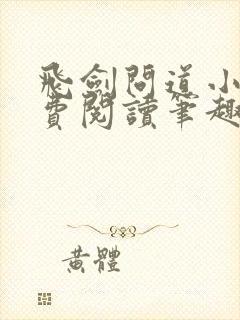 飛劍問道小
費閱讀筆趣
黃體